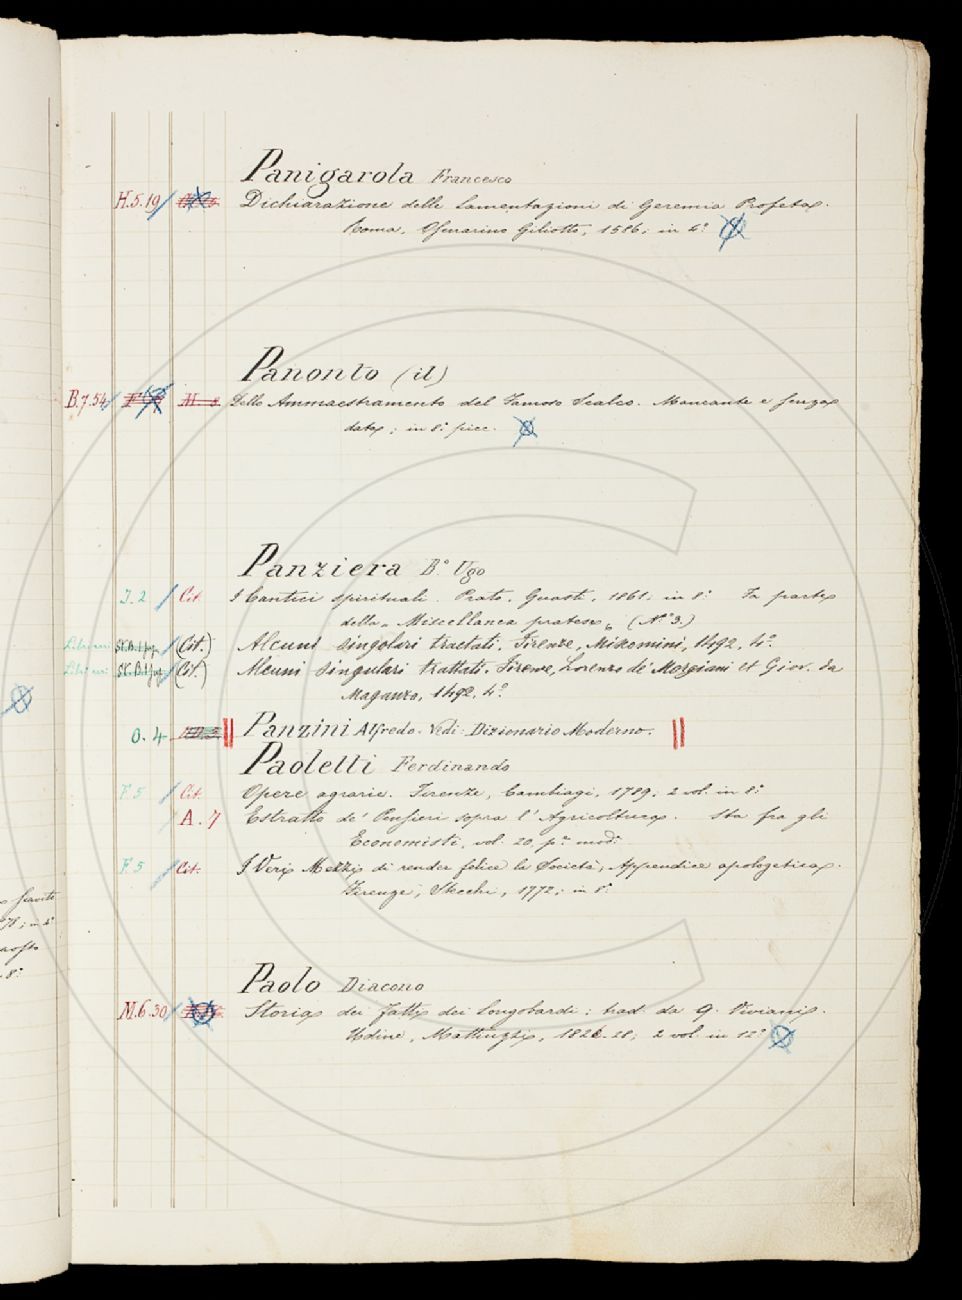 Panigarola Francesco
H.5.19 Dichiarazione delle Lamentazioni di Geremia Profeta.
Roma, Giliotto, 1586; in 4.º
Panonto (il)
B.7.54 Dello Ammaestramento del famoso Scalco. Mancante e senza
data; in 8.º picc.
Panziera B.º Ugo
I. 2 Cit. I Cantici spirituali. Prato, Guasti, 1861; in 8.º Fa parte
della „ Miscellanea pratese „ (N.º 3.)
(Cit.) Alcuni singolari tractati. Firenze, Miscomini, 1492, 4.º
(Cit.) Alcuni singulari trattati. Firenze, Lorenzo de' Morgiani et Giov. da
Maganza, 1492. 4.º
O. 4 Panzini Alfredo. Vedi: Dizionario Moderno.
Paoletti Ferdinando
F. 5 Cit. Opere agrarie. Firenze, Cambiagi, 1789; 2 vol. in 8.º
A. 7 Estratto de' Pensieri sopra l'Agricoltura. Sta fra gli
Economisti, vol. 20, p.e mod.
F. 5 Cit. I Veri Mezzi di render felice le Società; Appendice apologetica.
Firenze, Stecchi, 1772; in 8.º
Paolo Diacono
M.6.30 Storia dei fatti dei Longobardi: trad. da Q. Viviani.
Udine, Mattiuzzi, 1826-28; 2 vol. in 12.º